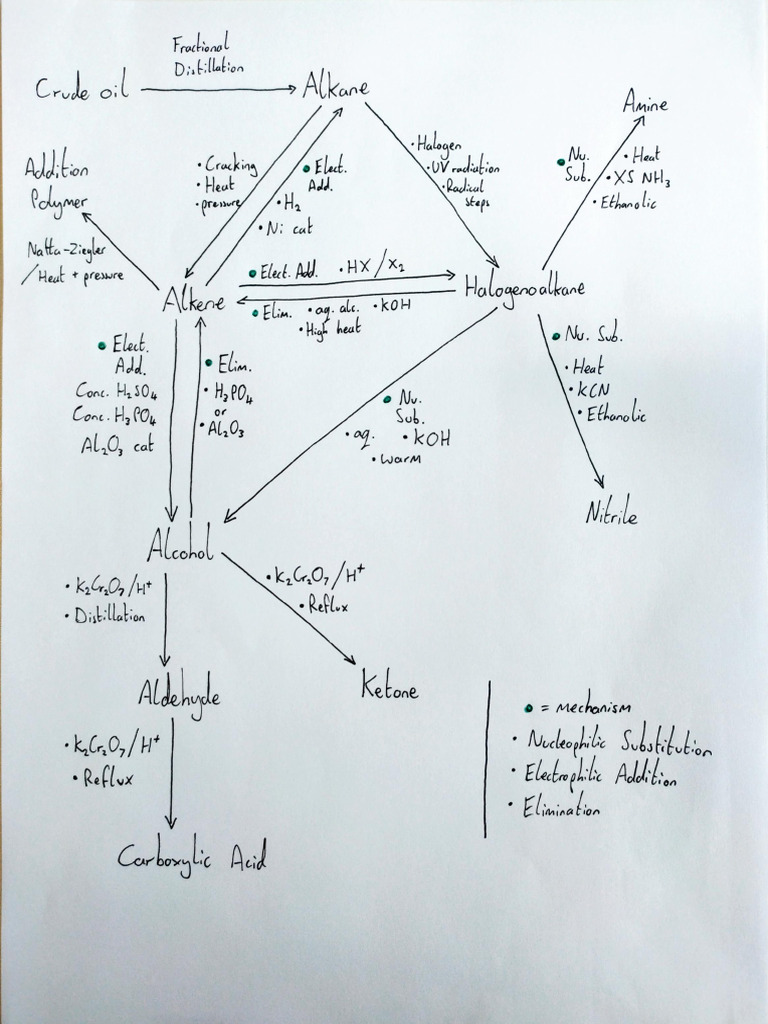 Fractional
Distillation
Crude oil
Alkane
Amine
Addition
Polymer
• Cracking
• Heat
• pressure
Elect.
Add.
• H₂
• Ni cat
• Halogen
• UV radiation
• Radical
steps
Nu.
Sub.
• Heat
• XS NH₃
• Ethanolic
Natta-Ziegler
/Heat + pressure
Alkene
Elect. Add. • HX/X₂
Elim. • aq. alc. • KOH
• High heat
Halogenoalkane
Elect.
Add.
Conc. H₂SO₄
Conc. H₃PO₄
Al₂O₃ cat
Elim.
• H₃PO₄
or
• Al₂O₃
Nu.
Sub.
• aq. • KOH
• warm
Nu. Sub.
• Heat
• KCN
• Ethanolic
Nitrile
Alcohol
• K₂Cr₂O₇/H⁺
• Distillation
• K₂Cr₂O₇/H⁺
• Reflux
Aldehyde
Ketone
• K₂Cr₂O₇/H⁺
• Reflux
Carboxylic Acid
= mechanism
• Nucleophilic Substitution
• Electrophilic Addition
• Elimination